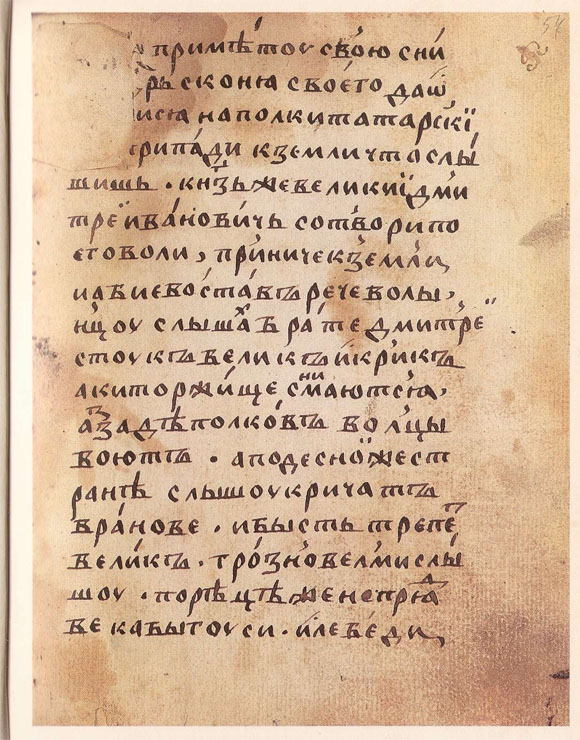 примѣтоу свою сни
рь сконѧ своего даѿ
исѧ наполки татарскї
припади кземли что слы
шишь · кнѧзьже великиї дми
трей ивановичь сотвори по
его воли, приниче кземли
и абие воставъ рече волы,
нцоу слышах брате дмитре
стоукъ великъ и крикъ
аки торжище снимаютсѧ,
азадѣ полковъ волцы
воютъ · аподесноїже ст
ранѣ слышоу кричатъ
вранове · ибысть трепетъ
великъ · грозно велми слы
шоу · порѣцѣже непрѧд
ве кабы гоуси · и лебеди